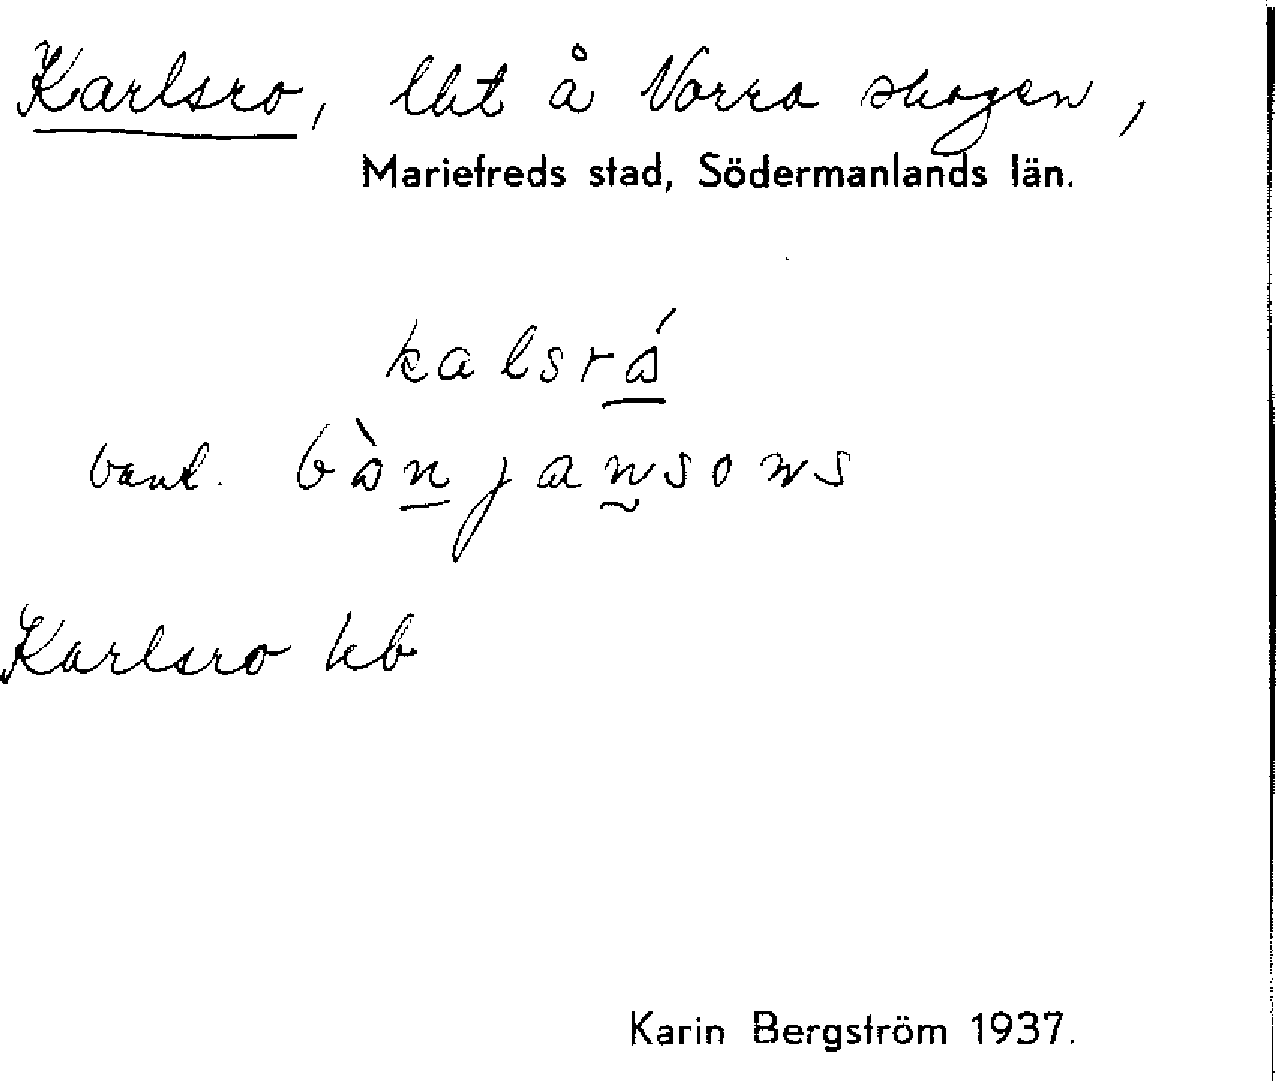 Karlsro, lht å Norra skogen,
Mariefreds stad, Södermanlands län.
kalsró
vanl. bònjansons
Karlsro kb
Karin Bergström 1937.